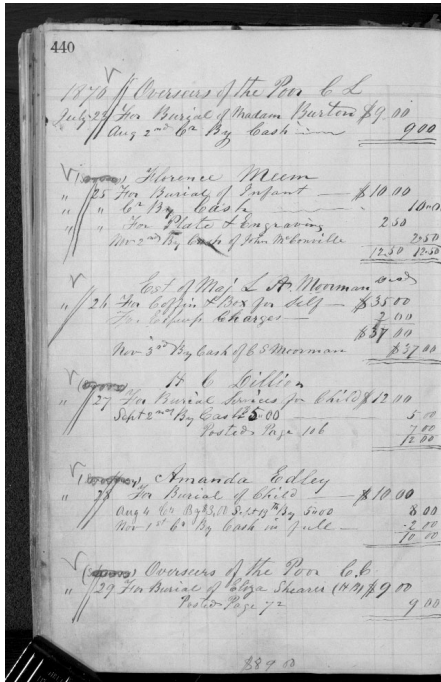 440
1870 Overseers of the Poor C L
July 22 For Burial of Madam Burton $9.00
Aug 2nd Cr By Cash 9 00
Florence Meem
" 25 For Burial of Infant — $10.00
" " Cr By Cash 10.00
" " For Plate & Engraving 2.50
Nov 2nd By Cash of John McConville 2.50
12.50 12.50
Est of Maj L A Moorman
" 26 For Coffin & Box for Self — $35.00
For Charges — 2.00
$37.00
Nov 3rd By Cash of C S Moorman $37.00
H C Dillion
" 27 For Burial Services for Child $12.00
Sept 2nd By Cash 5.00 5.00
Posted Page 106 7.00
12.00
Amanda Edley
" 28 For Burial of Child — $10.00
Aug 4 Cr By $3.00 Sept 19th By 5.00 8 00
Nov 1st Cr By Cash in full — 2.00
10.00
Overseers of the Poor C.C.
" 29 For Burial of Eliza Shearer $9.00
Posted Page 72 9 00
$89.00